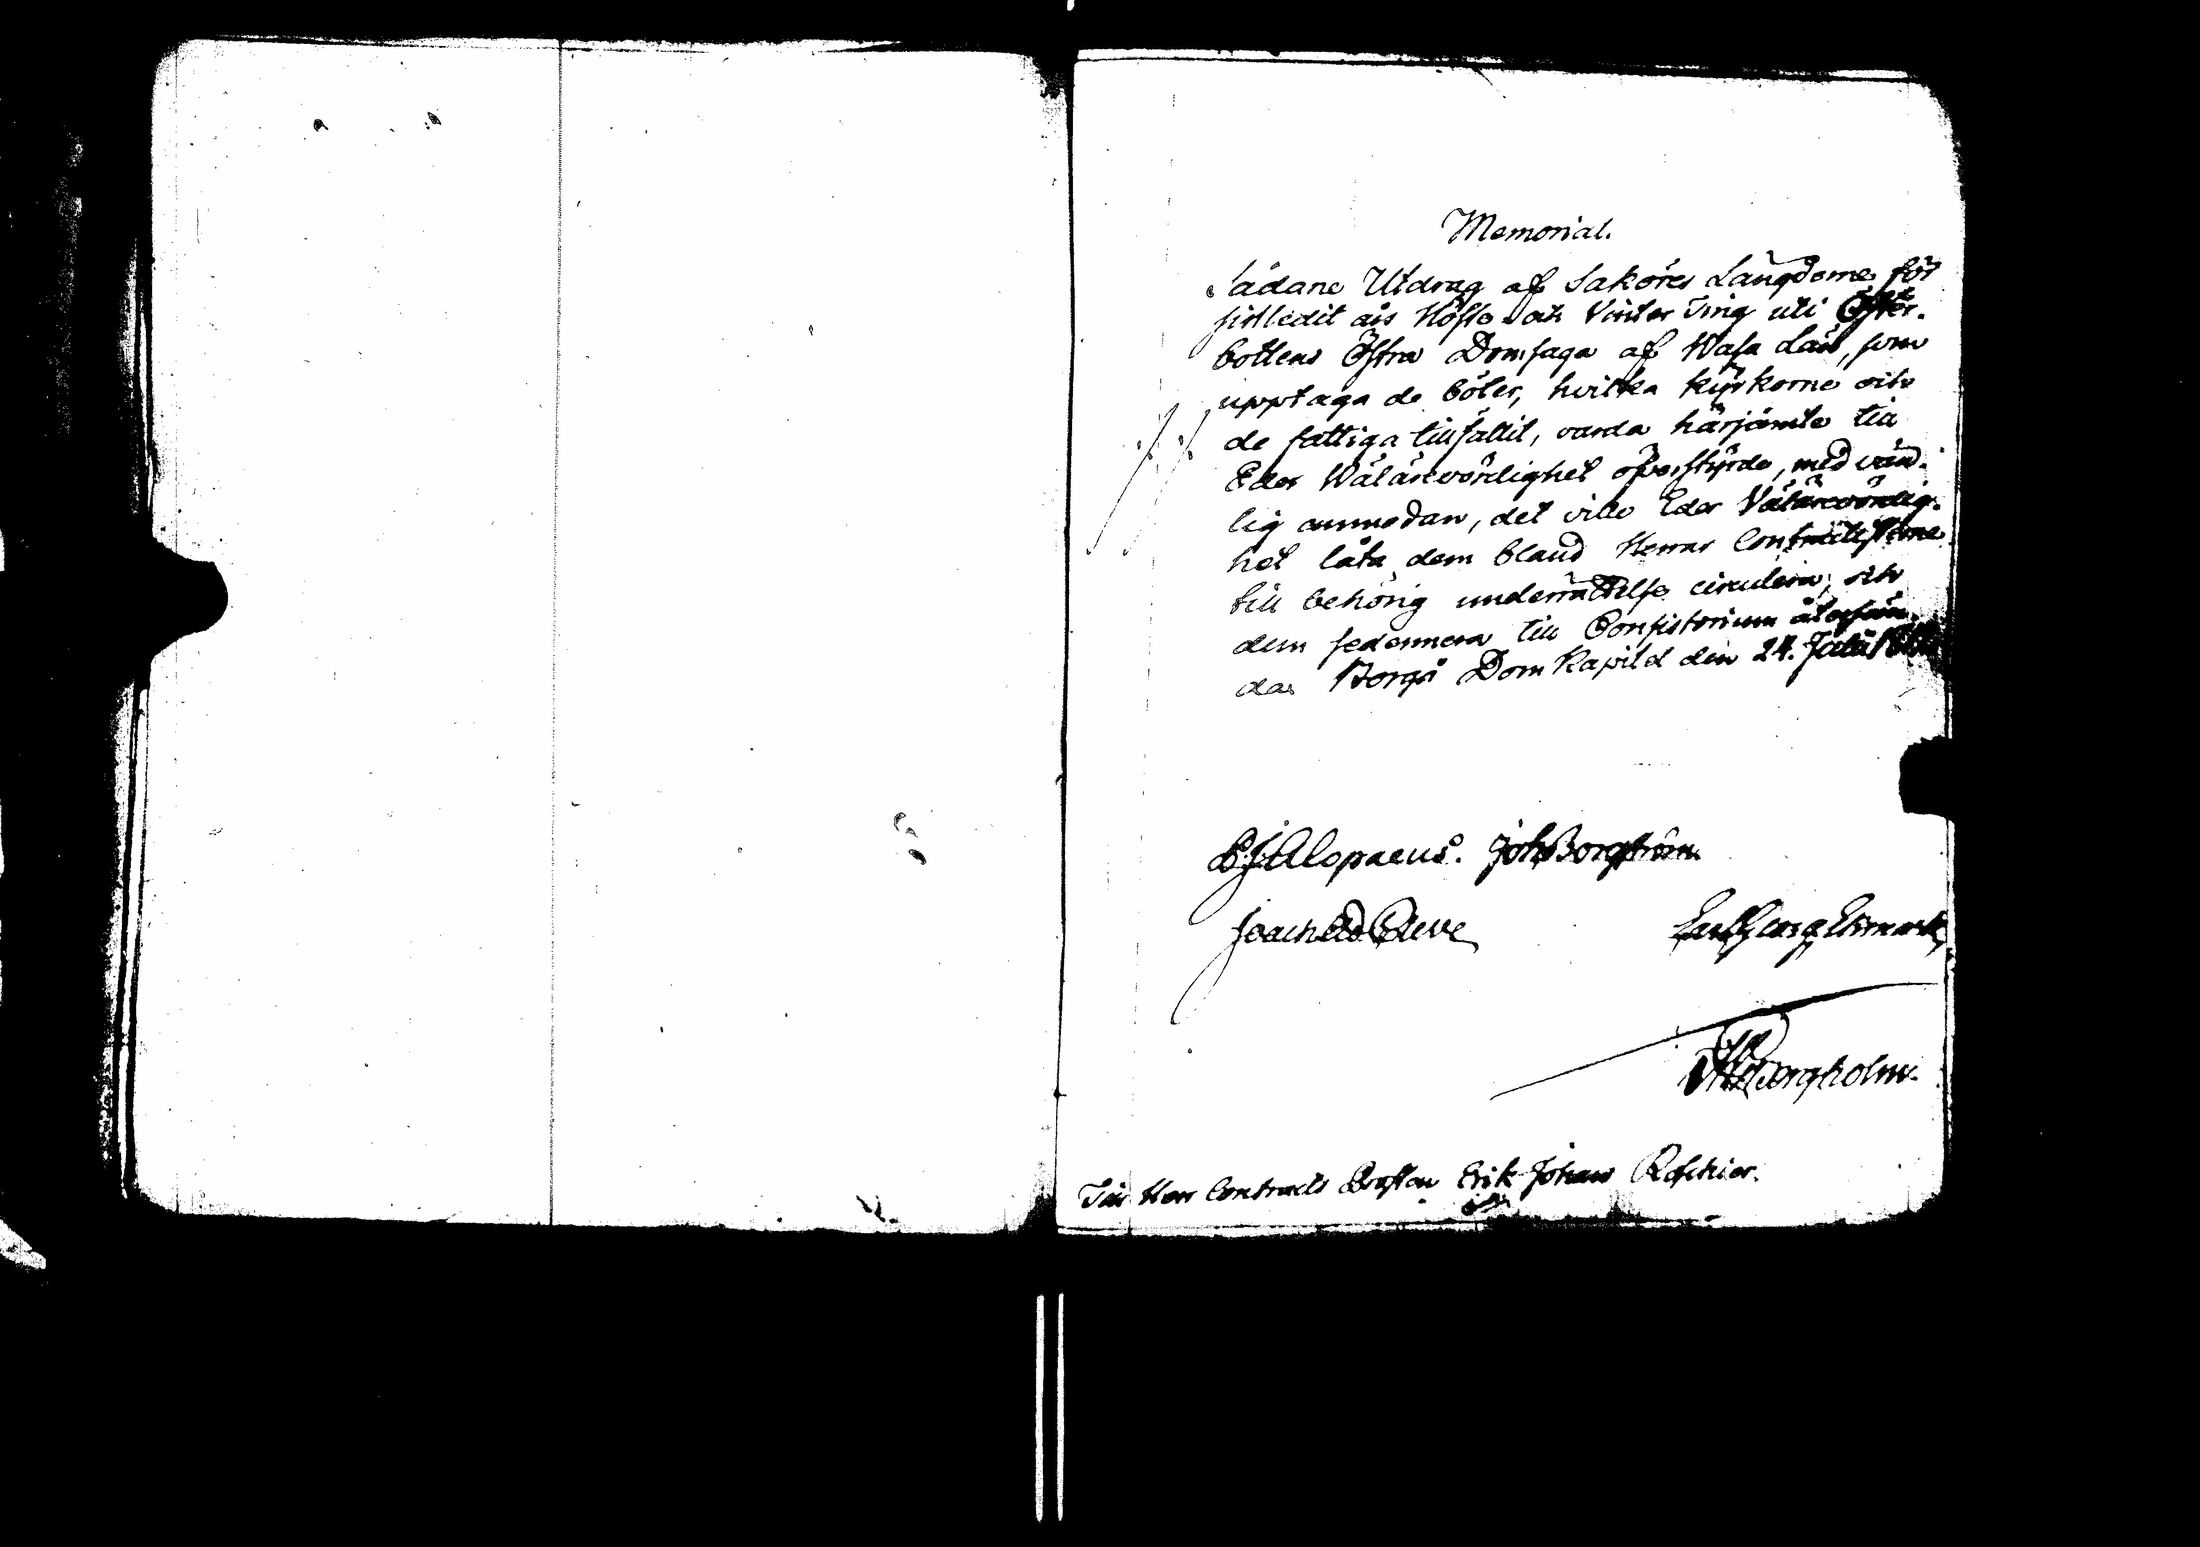 Memorial.
Sådane Utdrag af Saköres Längderne för
sistledit års Höste och Vinter Ting uti Öster-
bottens Östra Domsaga af Wasa Län, som
upptaga de böter, hvilka kyrkorne och
de fattiga tillfallit, varda härjämte till
Eder Wälärevördighet öfverstyrde, med vän-
lig anmodan, det ville Eder Välärevördig-
het låta dem bland Herrar Contractisterne
till behörig underrättelse circulera, och
dem sedermera till Consistorium återsän-
da. Borgå Dom Kapitel den 24. Julii
Alopaeus. Joh Borgström
Joach Cleve
Carl Georg Ekmark
Borgholm.
Till Herr Contracts Prosten Erik Johan Roschier.